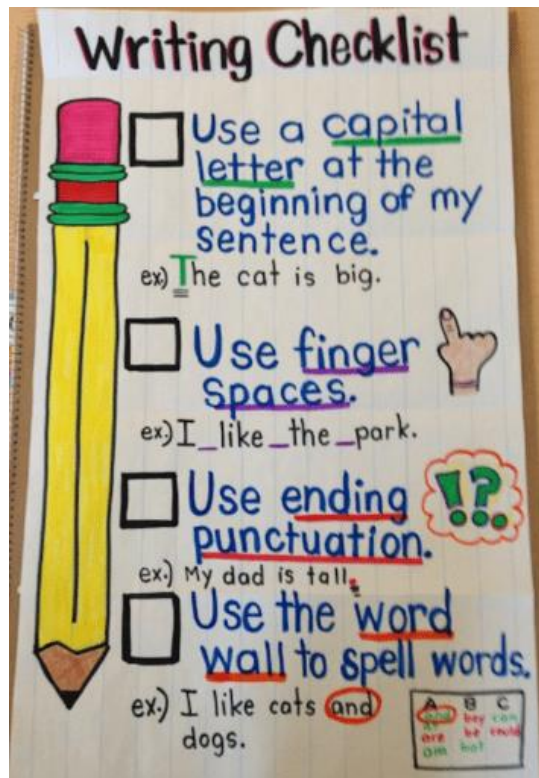 Writing Checklist
Use a capital
letter at the
beginning of my
sentence.
ex.) The cat is big.
Use finger
spaces.
ex.) I_like_the_park.
Use ending
punctuation.
!?.
ex.) My dad is tall.
Use the word
wall to spell words.
ex.) I like cats and
dogs.
A B C
and boy can
are be could
am but